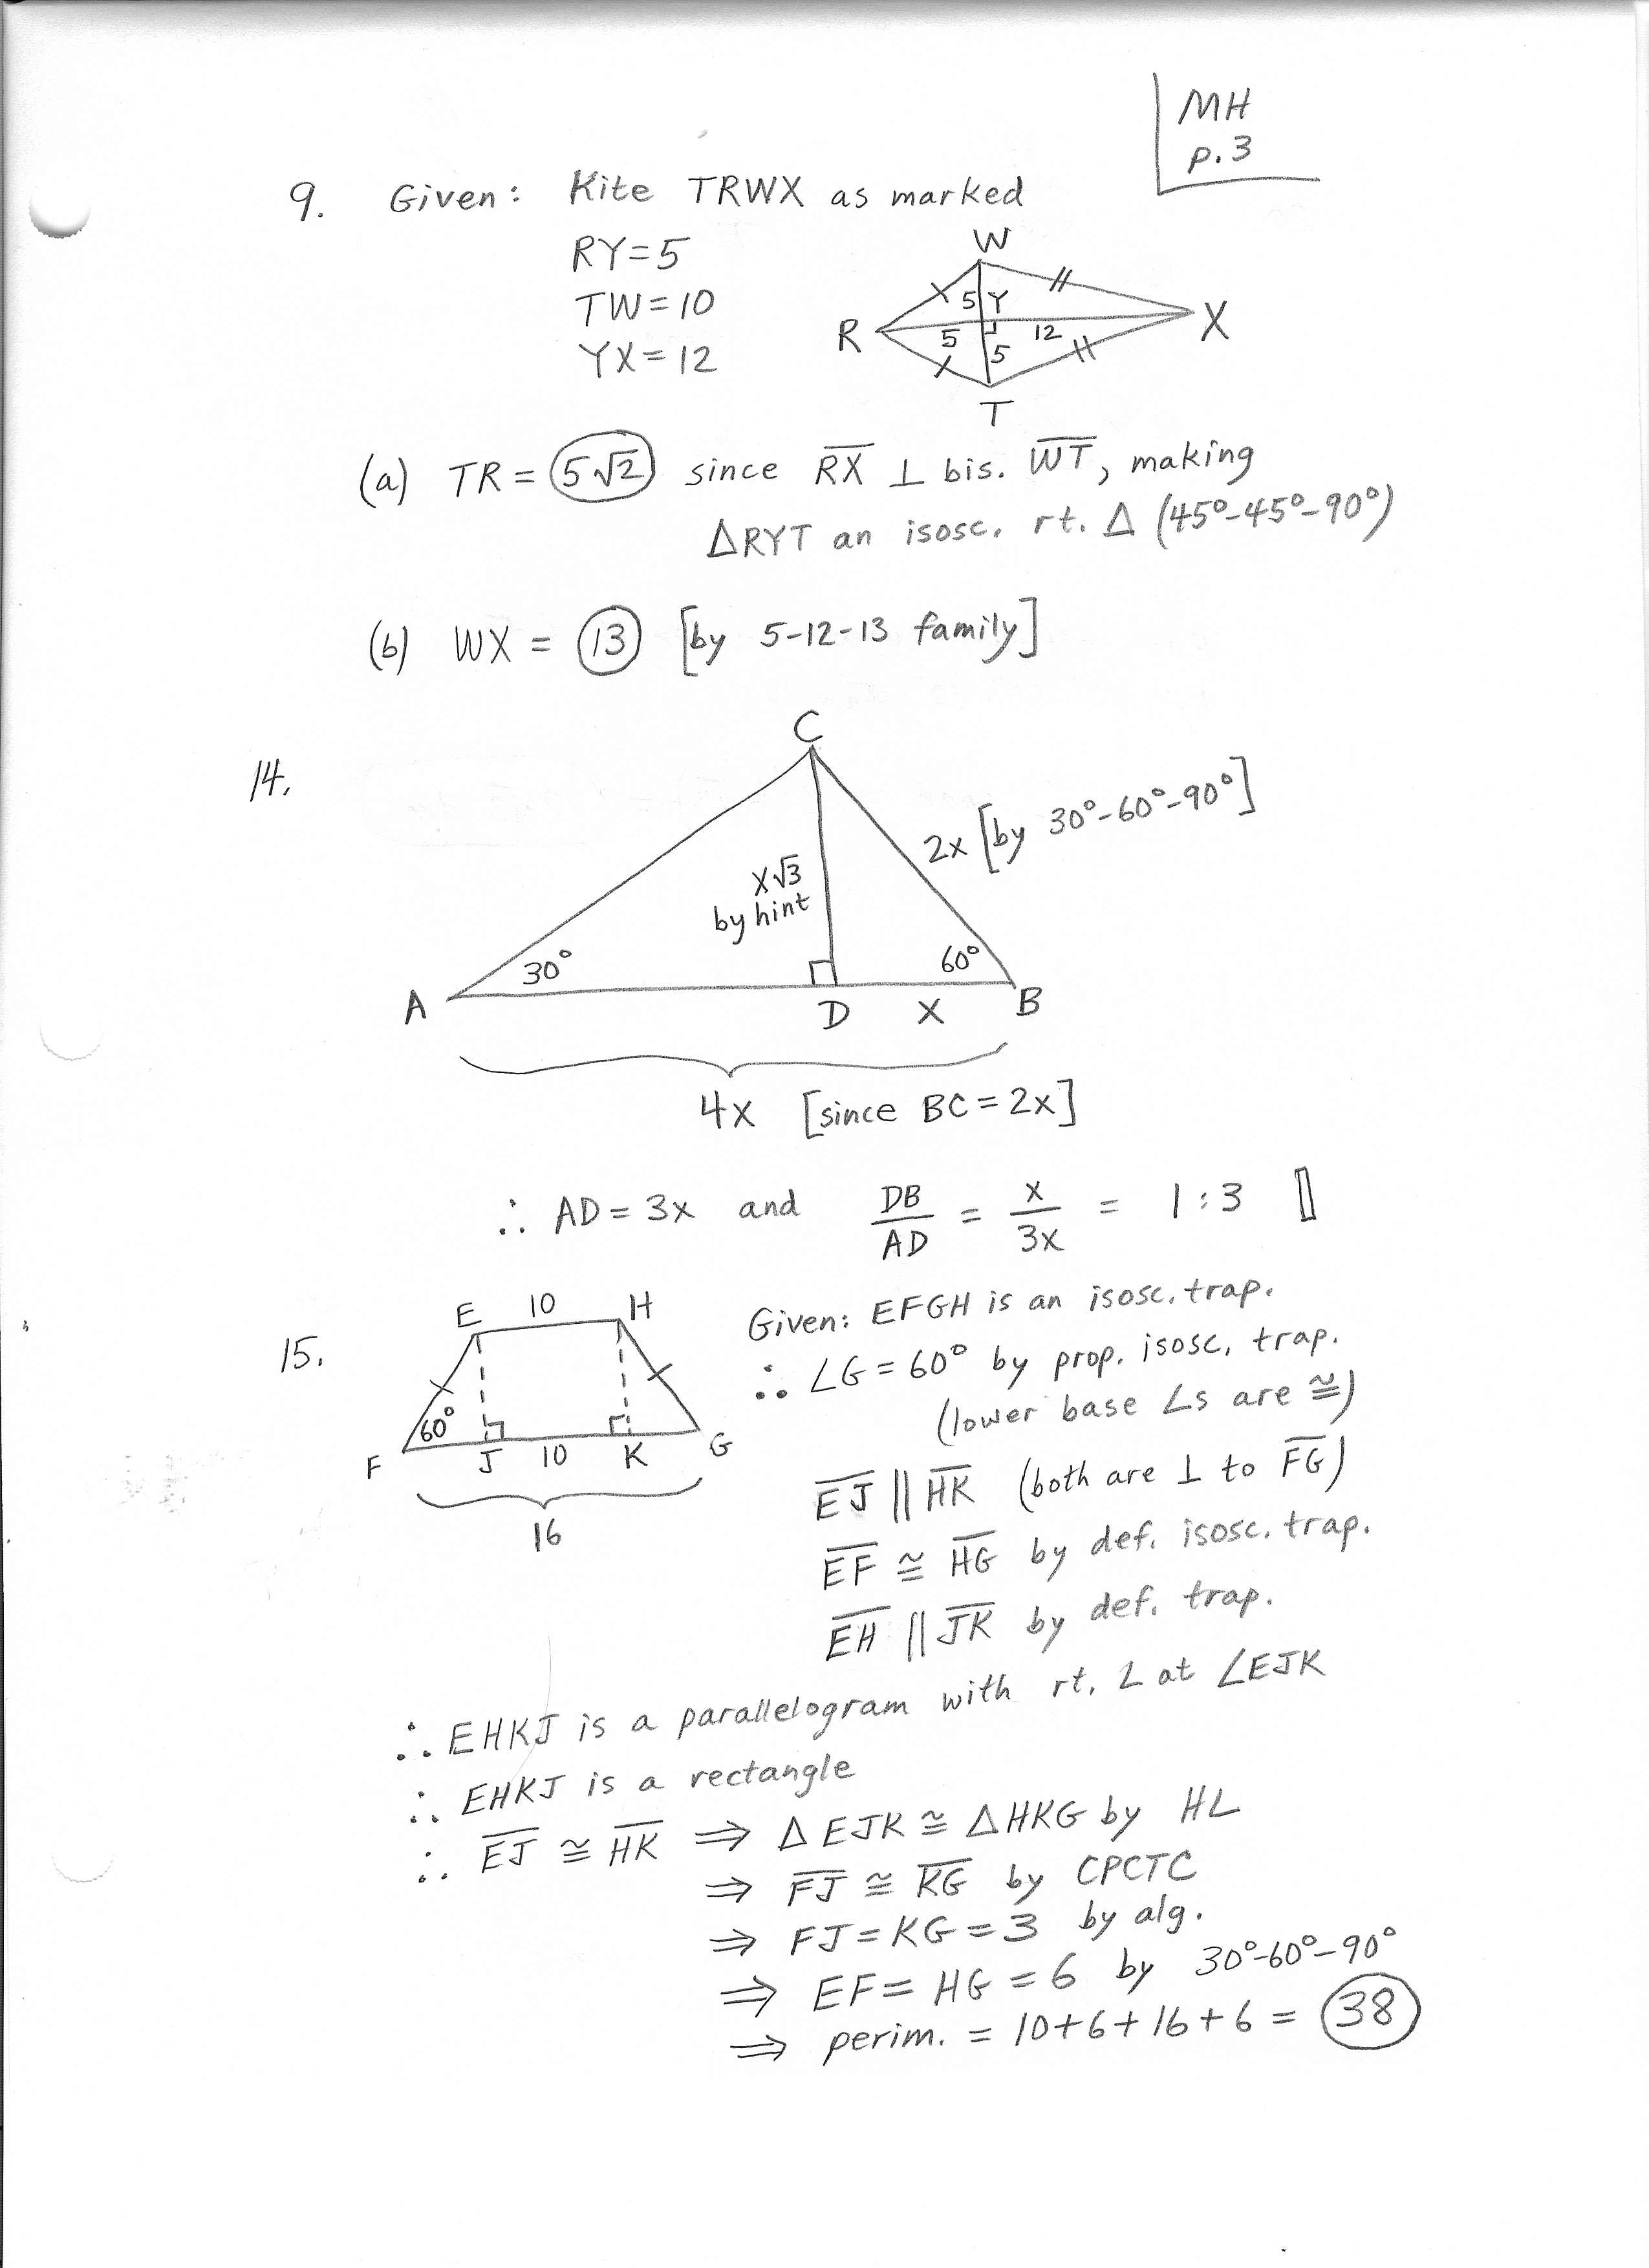 MH
p.3
9. Given: Kite TRWX as marked
RY=5
TW=10
YX=12
W
5 Y
R 5 12 X
5
T
(a) TR = 5√2 since R̅X̅ ⊥ bis. W̅T̅, making
△RYT an isosc. rt. △ (45°-45°-90°)
(b) WX = 13 [by 5-12-13 family]
14.
C
2x [by 30°-60°-90°]
x√3
by hint
30° 60°
A D x B
4x [since BC=2x]
∴ AD=3x and DB/AD = x/3x = 1:3 ▯
15.
E 10 H
60°
F J 10 K G
16
Given: EFGH is an isosc. trap.
∴ ∠G=60° by prop. isosc. trap.
(lower base ∠s are ≅)
E̅J̅ || H̅K̅ (both are ⊥ to F̅G̅)
E̅F̅ ≅ H̅G̅ by def. isosc. trap.
E̅H̅ || J̅K̅ by def. trap.
∴ EHKJ is a parallelogram with rt. ∠ at ∠EJK
∴ EHKJ is a rectangle
∴ E̅J̅ ≅ H̅K̅ ⇒ △EJK ≅ △HKG by HL
⇒ F̅J̅ ≅ K̅G̅ by CPCTC
⇒ FJ=KG=3 by alg.
⇒ EF=HG=6 by 30°-60°-90°
⇒ perim. = 10+6+16+6 = 38